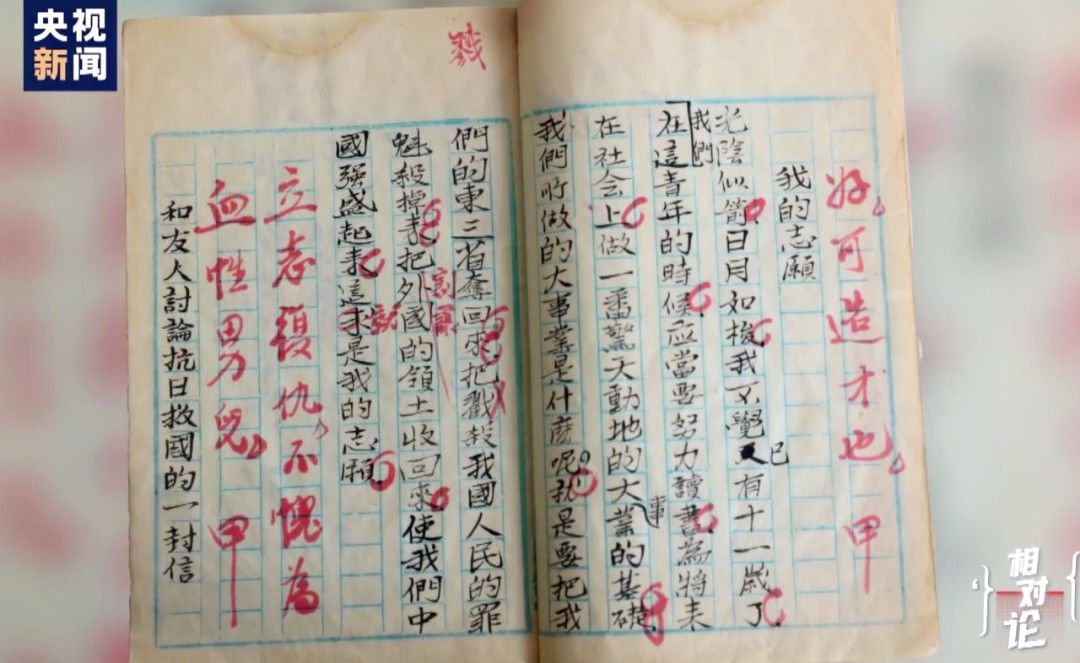 央视
新闻
好可造才也 甲
我的志願
光陰似箭日月如梭我不覺已有十一歲了
我們在這青年的時候應當要努力讀書為將来
在社会上做一番驚天動地的大事業的基礎
我們所做的大事業是什麽呢就是要把我
們的東三省奪回來把戮殺我國人民的罪
魁殺掉来把外國的領土收回來使我們中
國强盛起来這就是我的志願
立志復仇不愧為
血性男兒 甲
和友人討論抗日救國的一封信
相对论